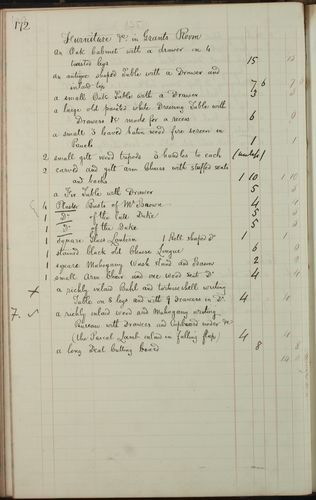 172
Furniture &c. in Grants Room
an Oak Cabinet with a drawer on 4
twisted legs 15
an antique shaped Table with a Drawer and
inlaid top 7 6
a small Oak Table with a Drawer 3
a large old painted white Dressing Table with
Drawers &c made for a recess 6
a small 3 leaved satin wood fire screen in
Panels 1
2 small gilt wood tripods 3 handles to each
2 carved and gilt arm Chairs with stuffed seats
and backs 1 10
a Fir Table with Drawer 5
4 Plaster Busts of Mr Brown 4
1 Do of the late Duke 5
1 Do of the Duke 5
1 square Glass Lantern 1 Bell shaped do 1
1 stained black old Chaise Longue 6
1 square Mahogany Wash stand and Basons 2
1 small Arm Chair and one wood seat Do 4
x a richly inlaid Buhl and tortoiseshell writing
Table on 8 legs and with 9 drawers in Do 4
7. a richly inlaid wood and Mahogany writing
Bureau with Drawers and Cupboard under &c
(the Pascal Lamb inlaid in falling flap) 4
a long Deal Cutting board 8